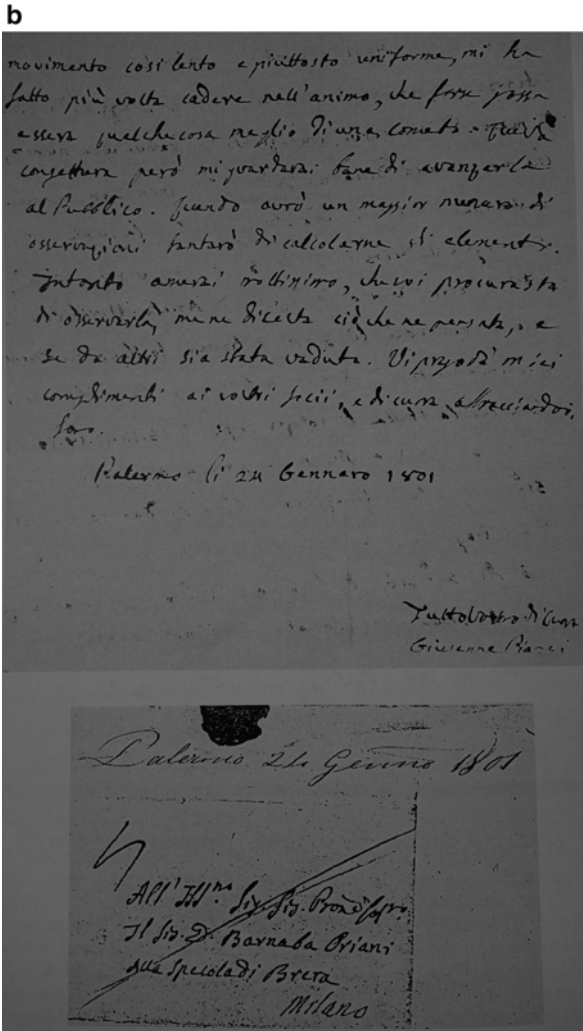 b
movimento così lento e piuttosto uniforme, mi ha
fatto più volte cadere nell'animo, che forse possa
essere qualche cosa meglio di una cometa. Questa
congettura però mi guarderei bene di avanzarla
al Pubblico. Quando avrò un maggior numero di
osservazioni tenterò di calcolarne gli elementi.
Intanto amerei moltissimo, che voi procuraste
di osservarla, me ne diceste ciò che ne pensate, e
se da altri sia stata veduta. Vi prego di miei
complimenti ai vostri socii, e di cuore abbracciandovi
sono.
Palermo li 24 Gennaro 1801
Tutto Vostro di Cuore
Giuseppe Piazzi
Palermo 24 Genno 1801
All' Ill.mo Sig. Sig. Prone
Il Sig. D. Barnaba Oriani
alla Specola di Brera
Milano